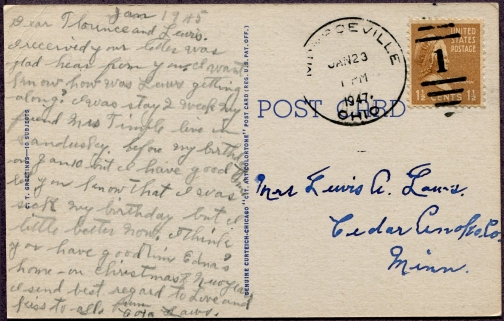 Jan 1945
Dear Florence and Lewis.
I received your letter was
glad hear from you. I want
know how was Lewis getting
along? I was stay 2 week my
friend Mrs Timple live in
Sandusky, before my birthday
on Jan 10. but I have good time
to you know that I was
sick my birthday but I
little better now. I think
you have good time Edna's
home - on Christmas & New year
I send best regard to Love and
kiss to all. from
Laws.
C.T. GREETINGS—10 SUBJECTS
GENUINE CURTEICH-CHICAGO "C.T. ART-COLORTONE" POST CARD (REG. U.S. PAT. OFF.)
POST CARD
MIDDLEVILLE
JAN 23
1 PM
1947
OHIO
UNITED
STATES
POSTAGE
1½ CENTS 1½
1
Mrs Lewis A. Laws.
Cedar Anoka Co.
Minn.